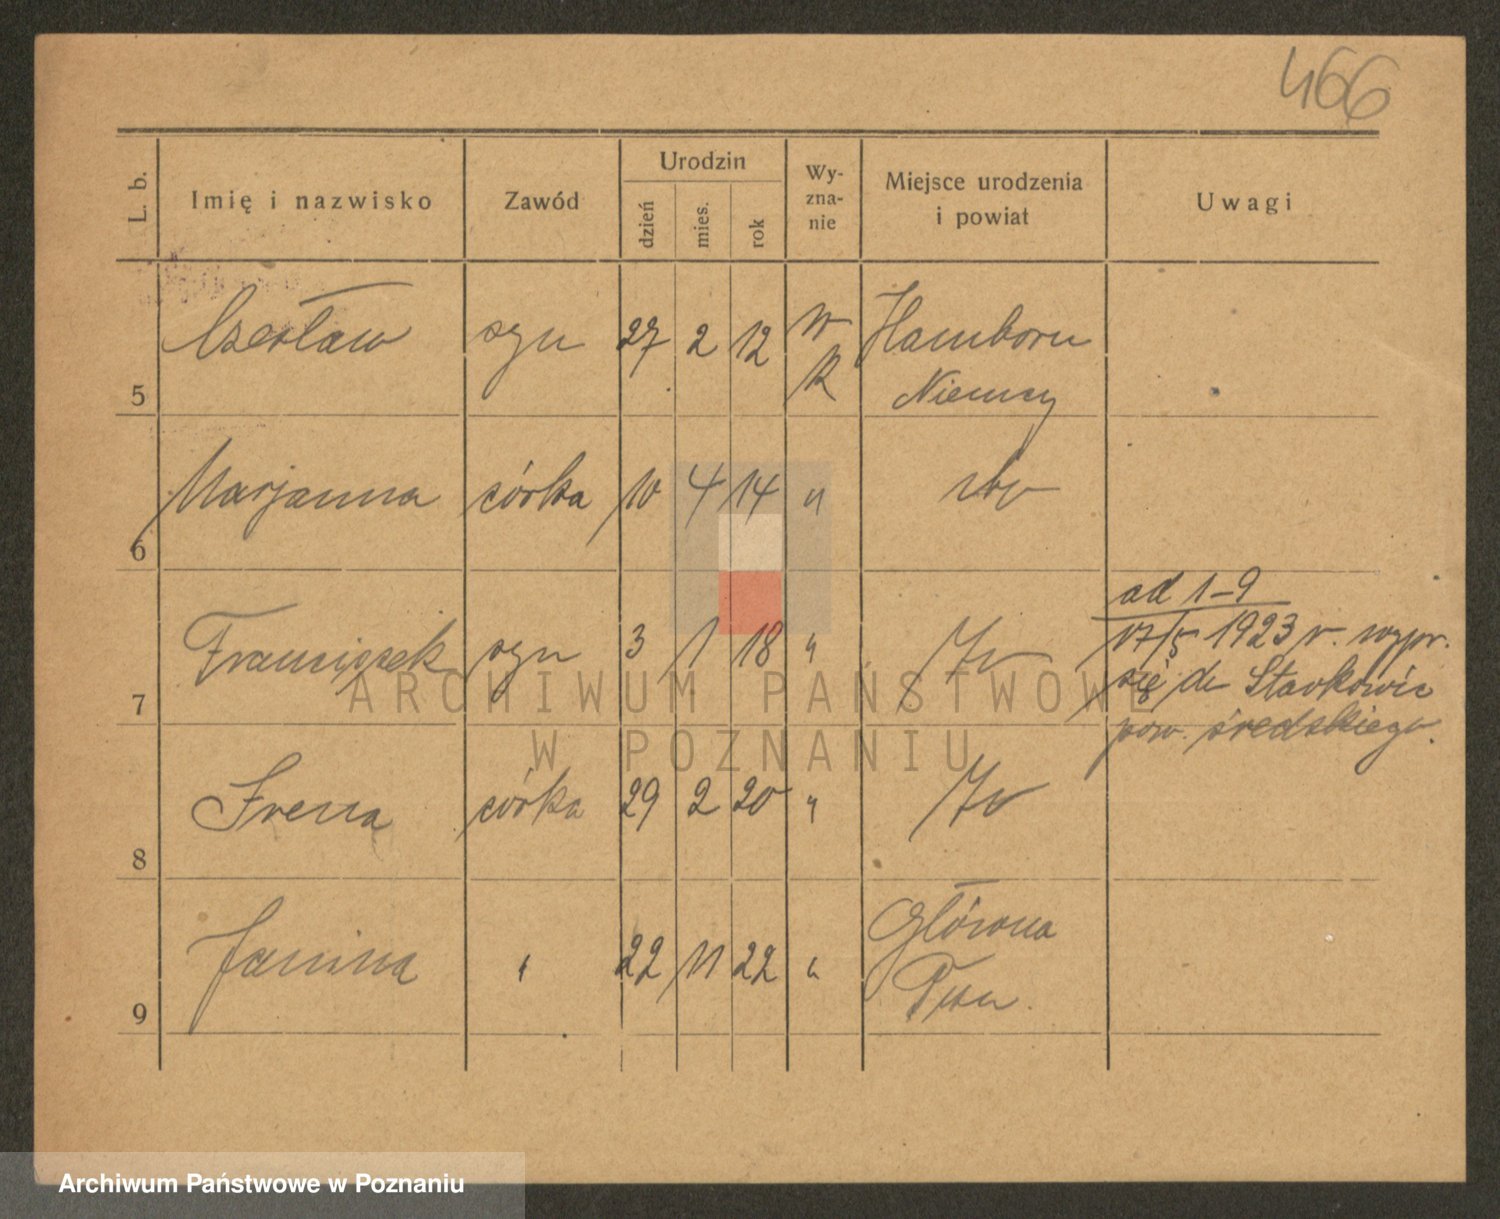 466
L. b.
Imię i nazwisko
Zawód
Urodzin
dzień
mies.
rok
Wy-
zna-
nie
Miejsce urodzenia
i powiat
Uwagi
5 Czesław syn 27 2 12 W R Hamborn
Niemcy
6 Marjanna córka 10 4 14 "
7 Franciszek syn 3 1 18 "
ad 1-9
17/5 1923 r. wypr.
się do
pow. średzkiego.
8 Irena córka 29 2 20 "
9 Janina " 22 11 22 " Główna
ARCHIWUM PAŃSTWOWE
W POZNANIU
Archiwum Państwowe w Poznaniu